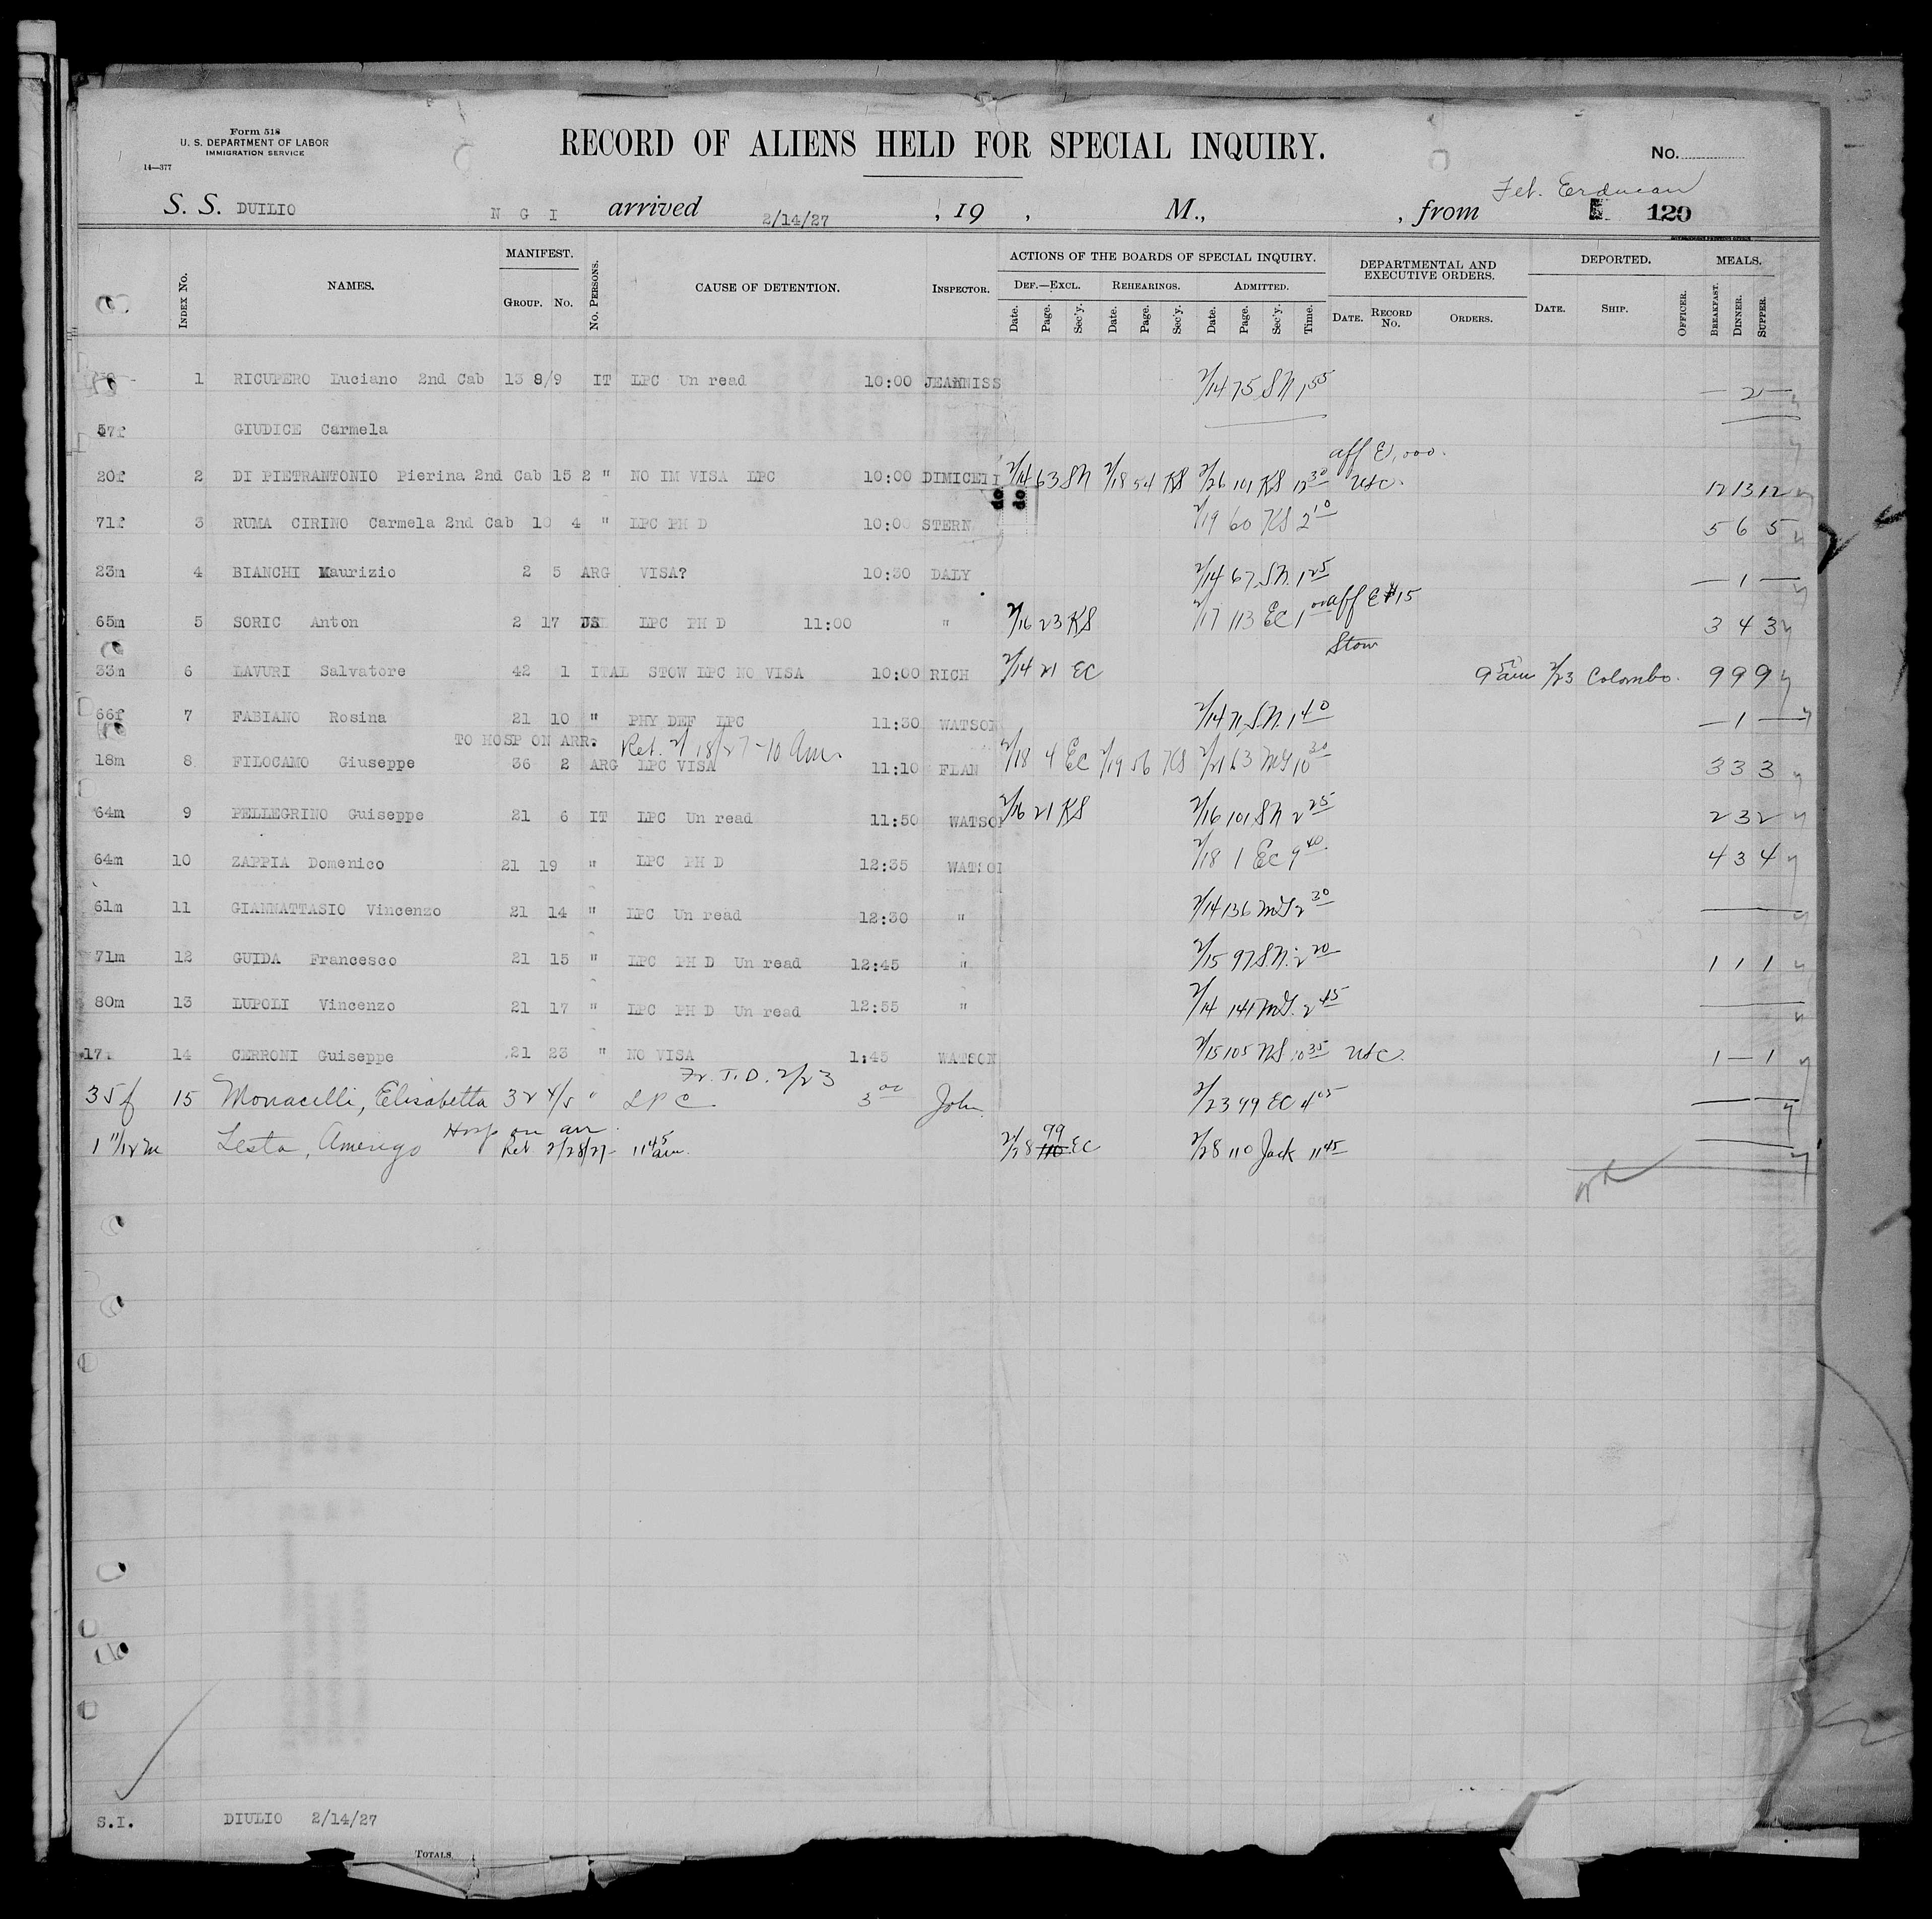 Form 518
U. S. DEPARTMENT OF LABOR
IMMIGRATION SERVICE
14—377
RECORD OF ALIENS HELD FOR SPECIAL INQUIRY.
No.
S. S. DUILIO N G I arrived 2/14/27 , 19 , M., , from 120
INDEX No. NAMES. MANIFEST. GROUP. No. No. PERSONS. CAUSE OF DETENTION. INSPECTOR. ACTIONS OF THE BOARDS OF SPECIAL INQUIRY. DEF.—EXCL. Date. Page. Sec'y. REHEARINGS. Date. Page. Sec'y. ADMITTED. Date. Page. Sec'y. Time. DEPARTMENTAL AND EXECUTIVE ORDERS. DATE. RECORD No. ORDERS. DEPORTED. DATE. SHIP. OFFICER. MEALS. BREAKFAST. DINNER. SUPPER.
1 RICUPERO Luciano 2nd Cab 13 8/9 IT LPC Un read 10:00 JEANNISS 2/14 75 SN 1 55 — 2 —
57f GIUDICE Carmela
aff E 1,000.
20f 2 DI PIETRANTONIO Pierina 2nd Cab 15 2 " NO IM VISA LPC 10:00 DIMICELI 2/14 63 SN 2/18 54 KS 2/26 101 KS 12 30 USC. 12 13 12
do do
71f 3 RUMA CIRINO Carmela 2nd Cab 10 4 " LPC PH D 10:00 STERN 2/19 60 KS 2 10 5 6 5
23m 4 BIANCHI Maurizio 2 5 ARG VISA? 10:30 DALY 2/14 67 SN. 1 25 — 1 —
65m 5 SORIC Anton 2 17 LPC PH D 11:00 " 2/16 23 KS 2/17 113 EC 1 00 aff E \$15 3 4 3
Stow
33m 6 LAVURI Salvatore 42 1 ITAL STOW LPC NO VISA 10:00 RICH 2/14 21 EC 9 am 2/23 Colombo. 9 9 9
66f 7 FABIANO Rosina 21 10 " PHY DEF LPC 11:30 WATSON 2/14 71 S.N. 1 40 — 1 —
TO HOSP ON ARR: Ret. 2/18/27-10 am.
18m 8 FILOCAMO Giuseppe 36 2 ARG LPC VISA 11:10 FLAN 2/18 4 EC 2/19 56 KS 2/21 63 MG 10 30 3 3 3
64m 9 PELLEGRINO Guiseppe 21 6 IT LPC Un read 11:50 WATSON 2/16 21 KS 2/16 101 SN 2 25 2 3 2
64m 10 ZAPPIA Domenico 21 19 " LPC PH D 12:35 WATSON 2/18 1 EC 9 40. 4 3 4
61m 11 GIANNATTASIO Vincenzo 21 14 " LPC Un read 12:30 " 2/14 136 MG 2 30
71m 12 GUIDA Francesco 21 15 " LPC PH D Un read 12:45 " 2/15 97 S.N. 2 20 1 1 1
80m 13 LUPOLI Vincenzo 21 17 " LPC PH D Un read 12:55 " 2/14 141 MG. 2 45
17 14 CERRONI Guiseppe 21 23 " NO VISA 1:45 WATSON 2/15 105 10 35 USC. 1 — 1
Fr. T.D. 2/23
35f 15 Monacelli, Elisabetta 32 4/5 " LPC 3 00 John 2/23 49 EC 4 05
Hosp on arr.
1 11/12 m Testa, Amerigo Ret 2/28/27- 11 45 am. 2/28 99 110 EC 2/28 110 Jack 11 45
S.I. DIULIO 2/14/27
TOTALS